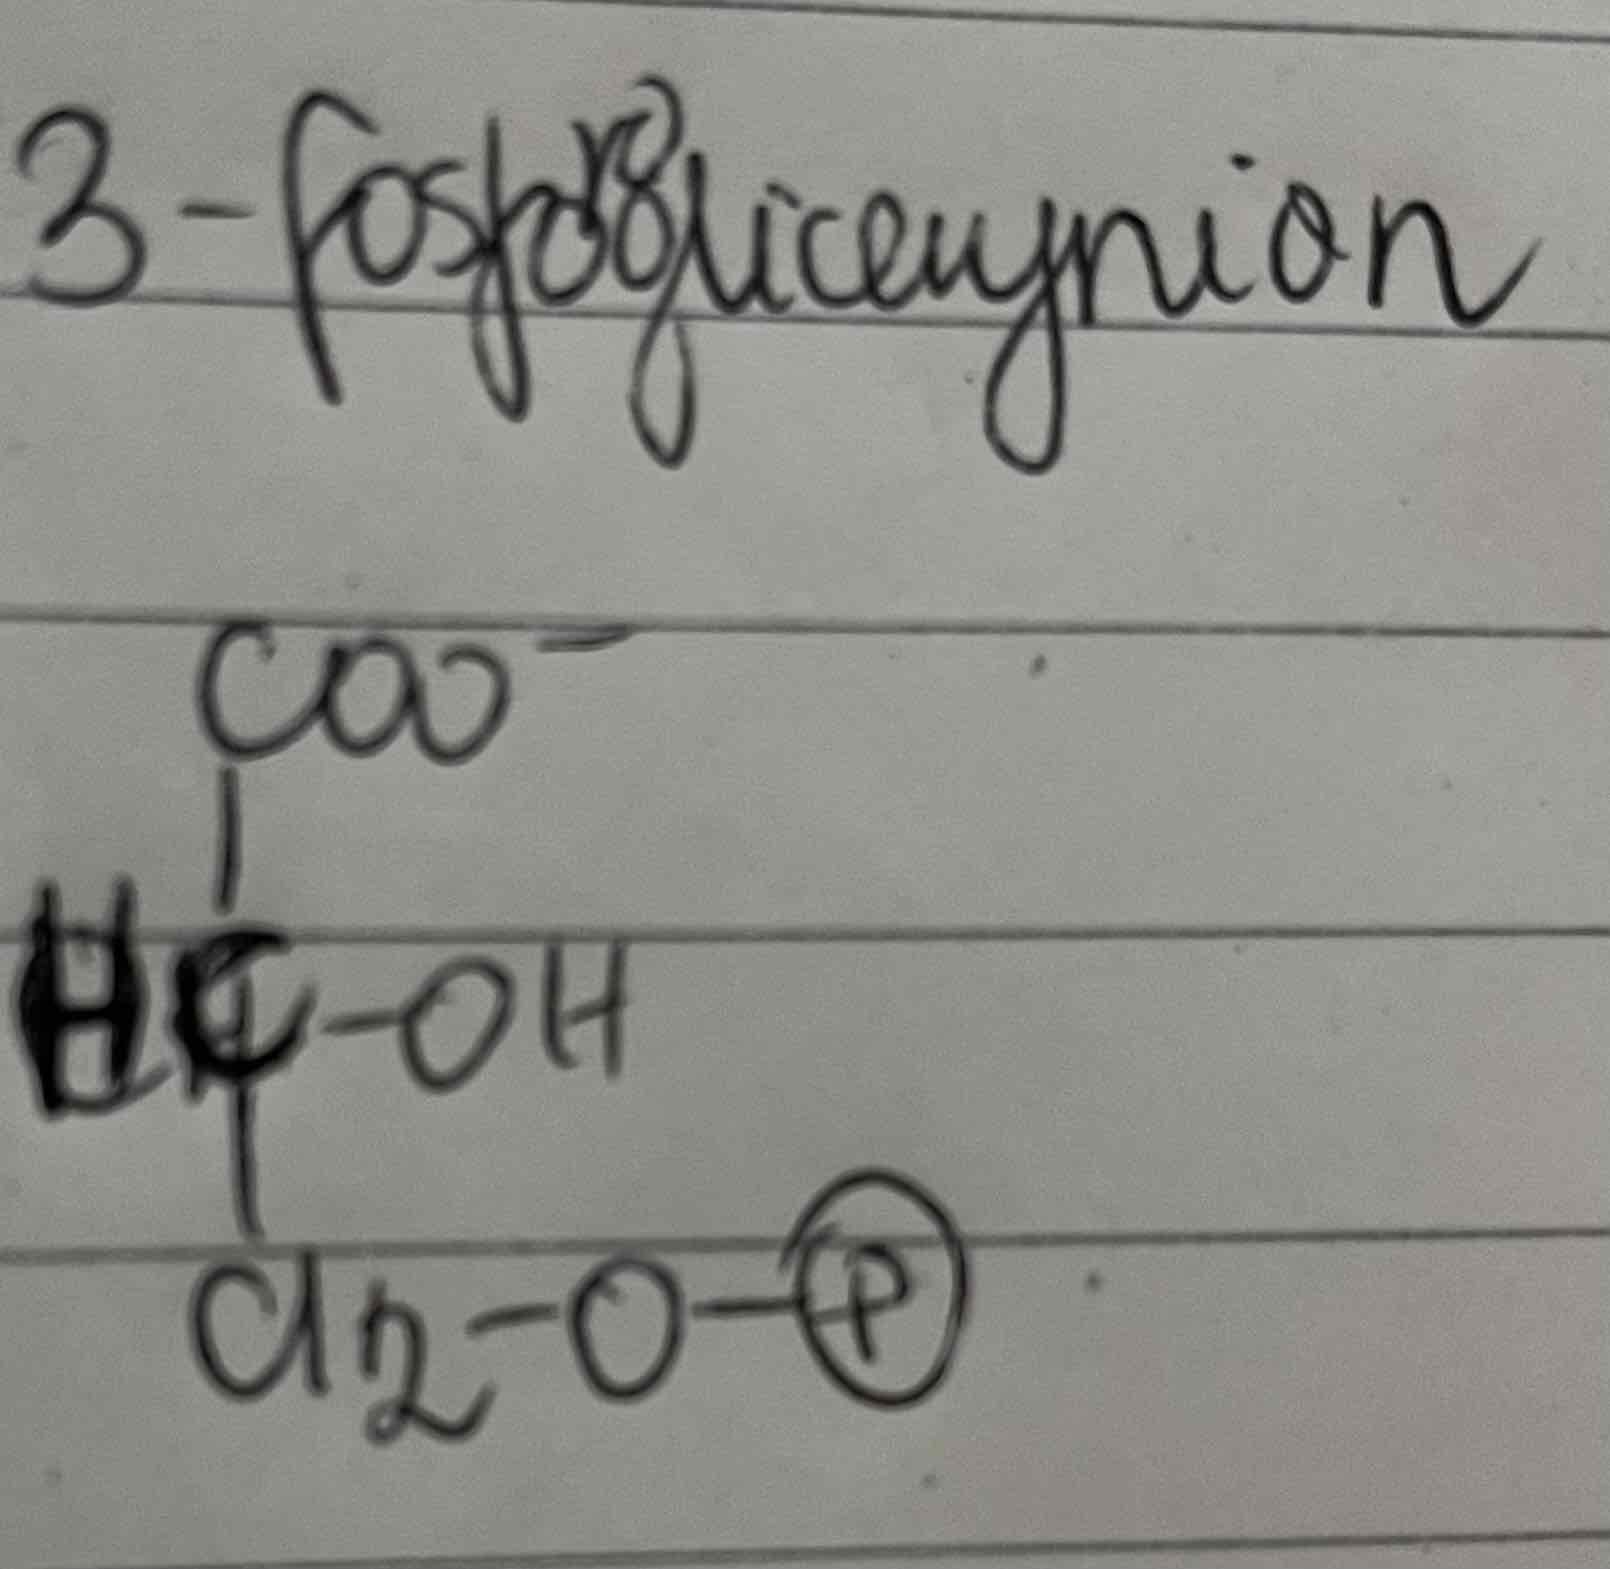 3-fosfogliceynian
COO⁻
HC-OH
CH2-O-P